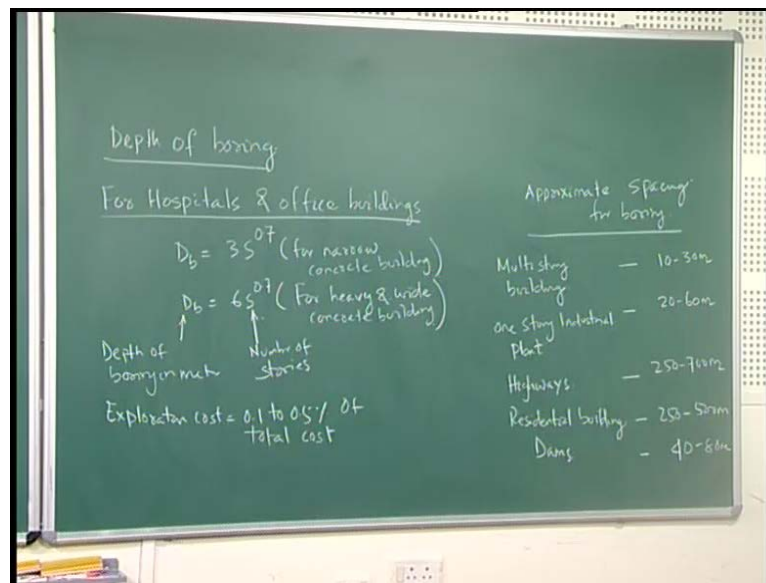 Depth of boring
For Hospitals & office buildings
D_b = 3S^0.7 (for narrow
concrete building)
D_b = 6S^0.7 (For heavy & wide
concrete building)
Depth of
boring in meter
Number of
stories
Exploration cost = 0.1 to 0.5% of
total cost
Approximate Spacing
for boring
Multi story
building — 10-30m
one story Industrial
Plant — 20-60m
Highways — 250-700m
Residential building — 250-500m
Dams — 40-80m